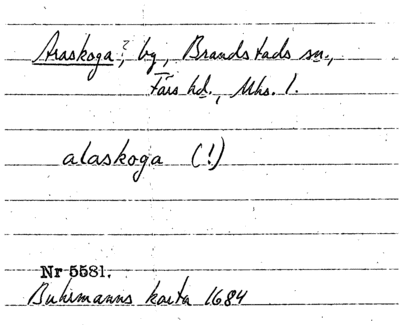 Araskoga?, by, Brandstads sn.,
Färs hd., Mhs. l.
alaskoga (!)
Nr 5581.
Buhrmanns karta 1684